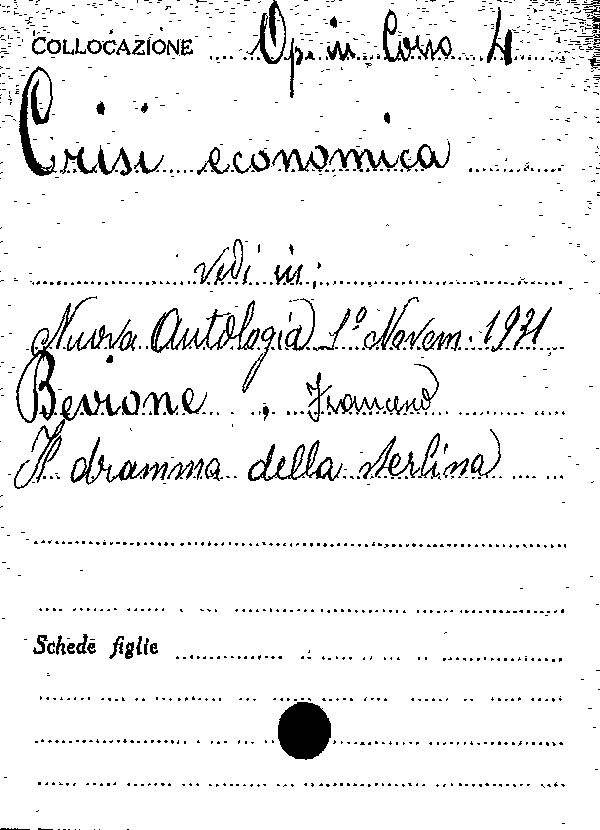 COLLOCAZIONE Op. in Corso 4
Crisi economica
vedi in:
Nuova Antologia 1º Novem. 1931
Bevione, Francesco
Il dramma della sterlina
Schede figlie